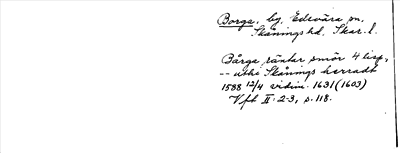 Borga, by, Edsvära sn,
Skånings hd, Skar. l.
Bårga räntar smör 4 lisp,
-- uthi Skånings härradt
1588 12/4 vidim. 1631 (1603)
Vft II: 2-3, s. 118.